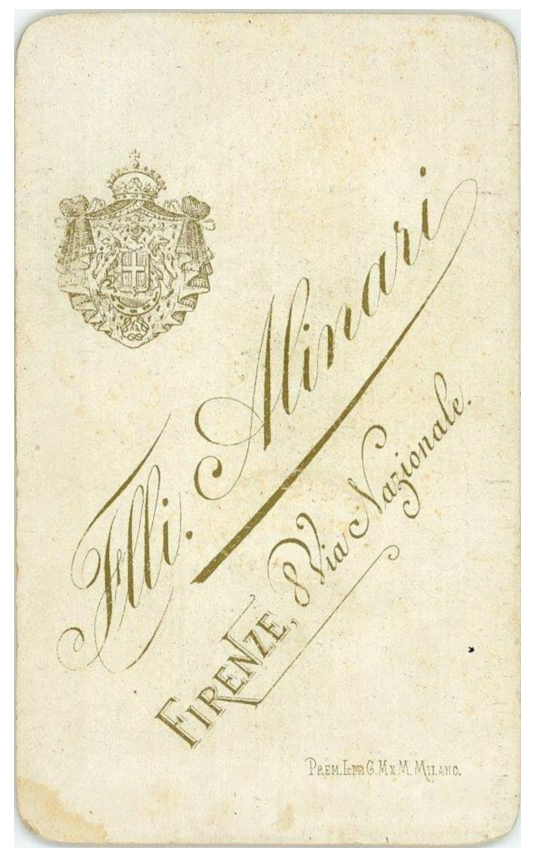 Flli. Alinari
FIRENZE, 8 Via Nazionale.
PREM. LIT. G. M & M. MILANO.